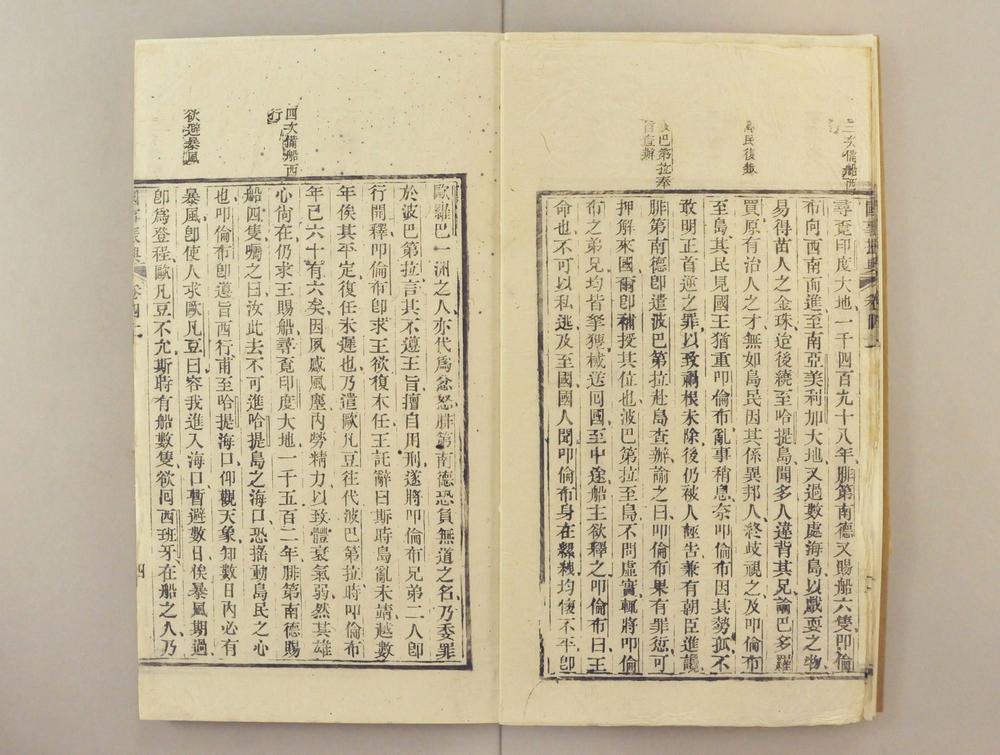 三次備船西
尋覔印度大地一千四百九十八年腓第南德又賜船六隻叩倫
布向西南而進至南亞美利加大地又過數處海島以戲耍之物
易得苗人之金珠迨後繞至哈提島聞多人違背其兄諭巴多羅
買原有治人之才無如島民因其係異邦人終歧視之及叩倫布
島民復叛
至島其民見國王猶重叩倫布亂事稍息奈叩倫布因其勢孤不
敢明正首逆之罪以致禍根未除後仍被人誣告兼有朝臣進讒
腓第南德卽遣波巴第拉赴島查辦諭之曰叩倫布果有罪愆可
波巴第拉奉
旨查辦
押解來國爾卽補授其位也波巴第拉至島不問虛實輒將叩倫
布之弟兄均皆拏獲械送囘國至中途船主欲釋之叩倫布曰王
命也不可以私逃及至國國人聞叩倫布身在縲絏均懷不平卽
歐羅巴一洲之人亦代爲忿怒腓第南德恐負無道之名乃委罪
於波巴第拉言其不遵王旨擅自用刑遂將叩倫布兄第二人卽
行開釋叩倫布卽求王欲復本任王託辭曰斯時島亂未靖越數
年俟其平定復任未遲也乃遣歐凡豆往代波巴第拉時叩倫布
年已六十有六矣因風感風塵內勞精力以致體衰氣弱然其雄
心尙在仍求王賜船尋覔印度大地一千五百二年腓第南德賜
四次備船西
行
船四隻囑之曰汝此去不可進哈提島之海口恐搖動島民之心
也叩倫布卽遵旨西行甫至哈提海口仰觀天象知數日內必有
暴風卽使人求歐凡豆曰容我進入海口暫避數日俟暴風期過
欲避暴風
卽爲登程歐凡豆不允斯時有船數隻欲囘西班牙在船之人乃
卷四 二
四